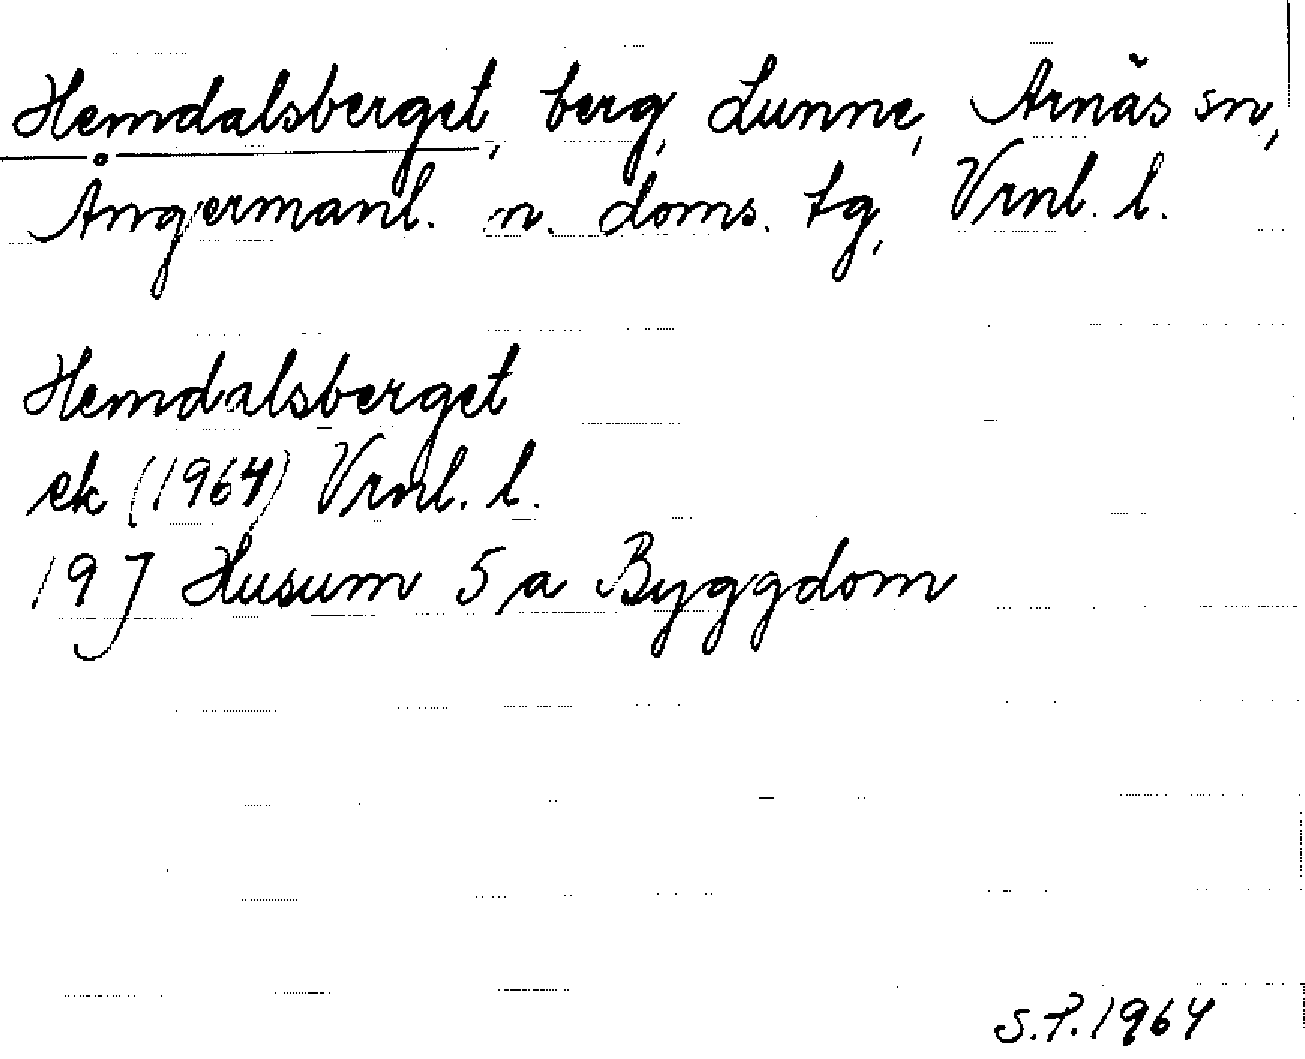 Hemdalsberget, berg, Lunne, Arnäs sn,
Ångermanl. n. doms. tg, Vrnl. l.
Hemdalsberget
ek (1964) Vrnl. l.
19 J Husum 5 a Byggdom
S.P. 1964